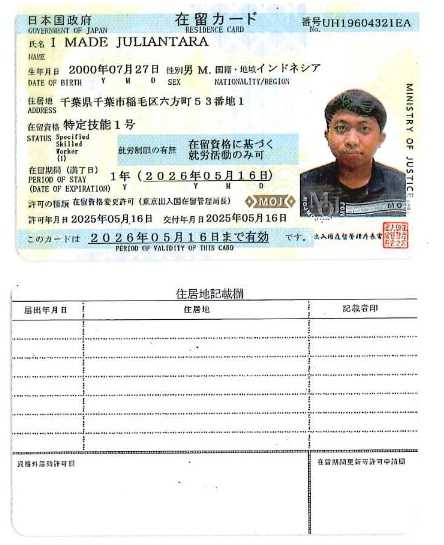 日本国政府 在留カード 番号UH19604321EA
GOVERNMENT OF JAPAN RESIDENCE CARD No.
氏名 I MADE JULIANTARA
NAME
生年月日 2000年07月27日 性別 男 M. 国籍・地域 インドネシア
DATE OF BIRTH Y M D SEX NATIONALITY/REGION
住居地 千葉県千葉市稲毛区六方町53番地1
ADDRESS
在留資格 特定技能1号
STATUS Specified Skilled Worker (i)
就労制限の有無 在留資格に基づく就労活動のみ可
在留期間(満了日) 1年(2026年05月16日)
PERIOD OF STAY (DATE OF EXPIRATION) Y M D
許可の種類 在留資格変更許可(東京出入国在留管理局長)
MOJ
許可年月日 2025年05月16日 交付年月日 2025年05月16日
このカードは 2026年05月16日まで有効 です。
PERIOD OF VALIDITY OF THIS CARD
出入国在留管理庁長官
MINISTRY OF JUSTICE
住居地記載欄
届出年月日 住居地 記載者印
資格外活動許可欄 在留期間更新等許可申請欄